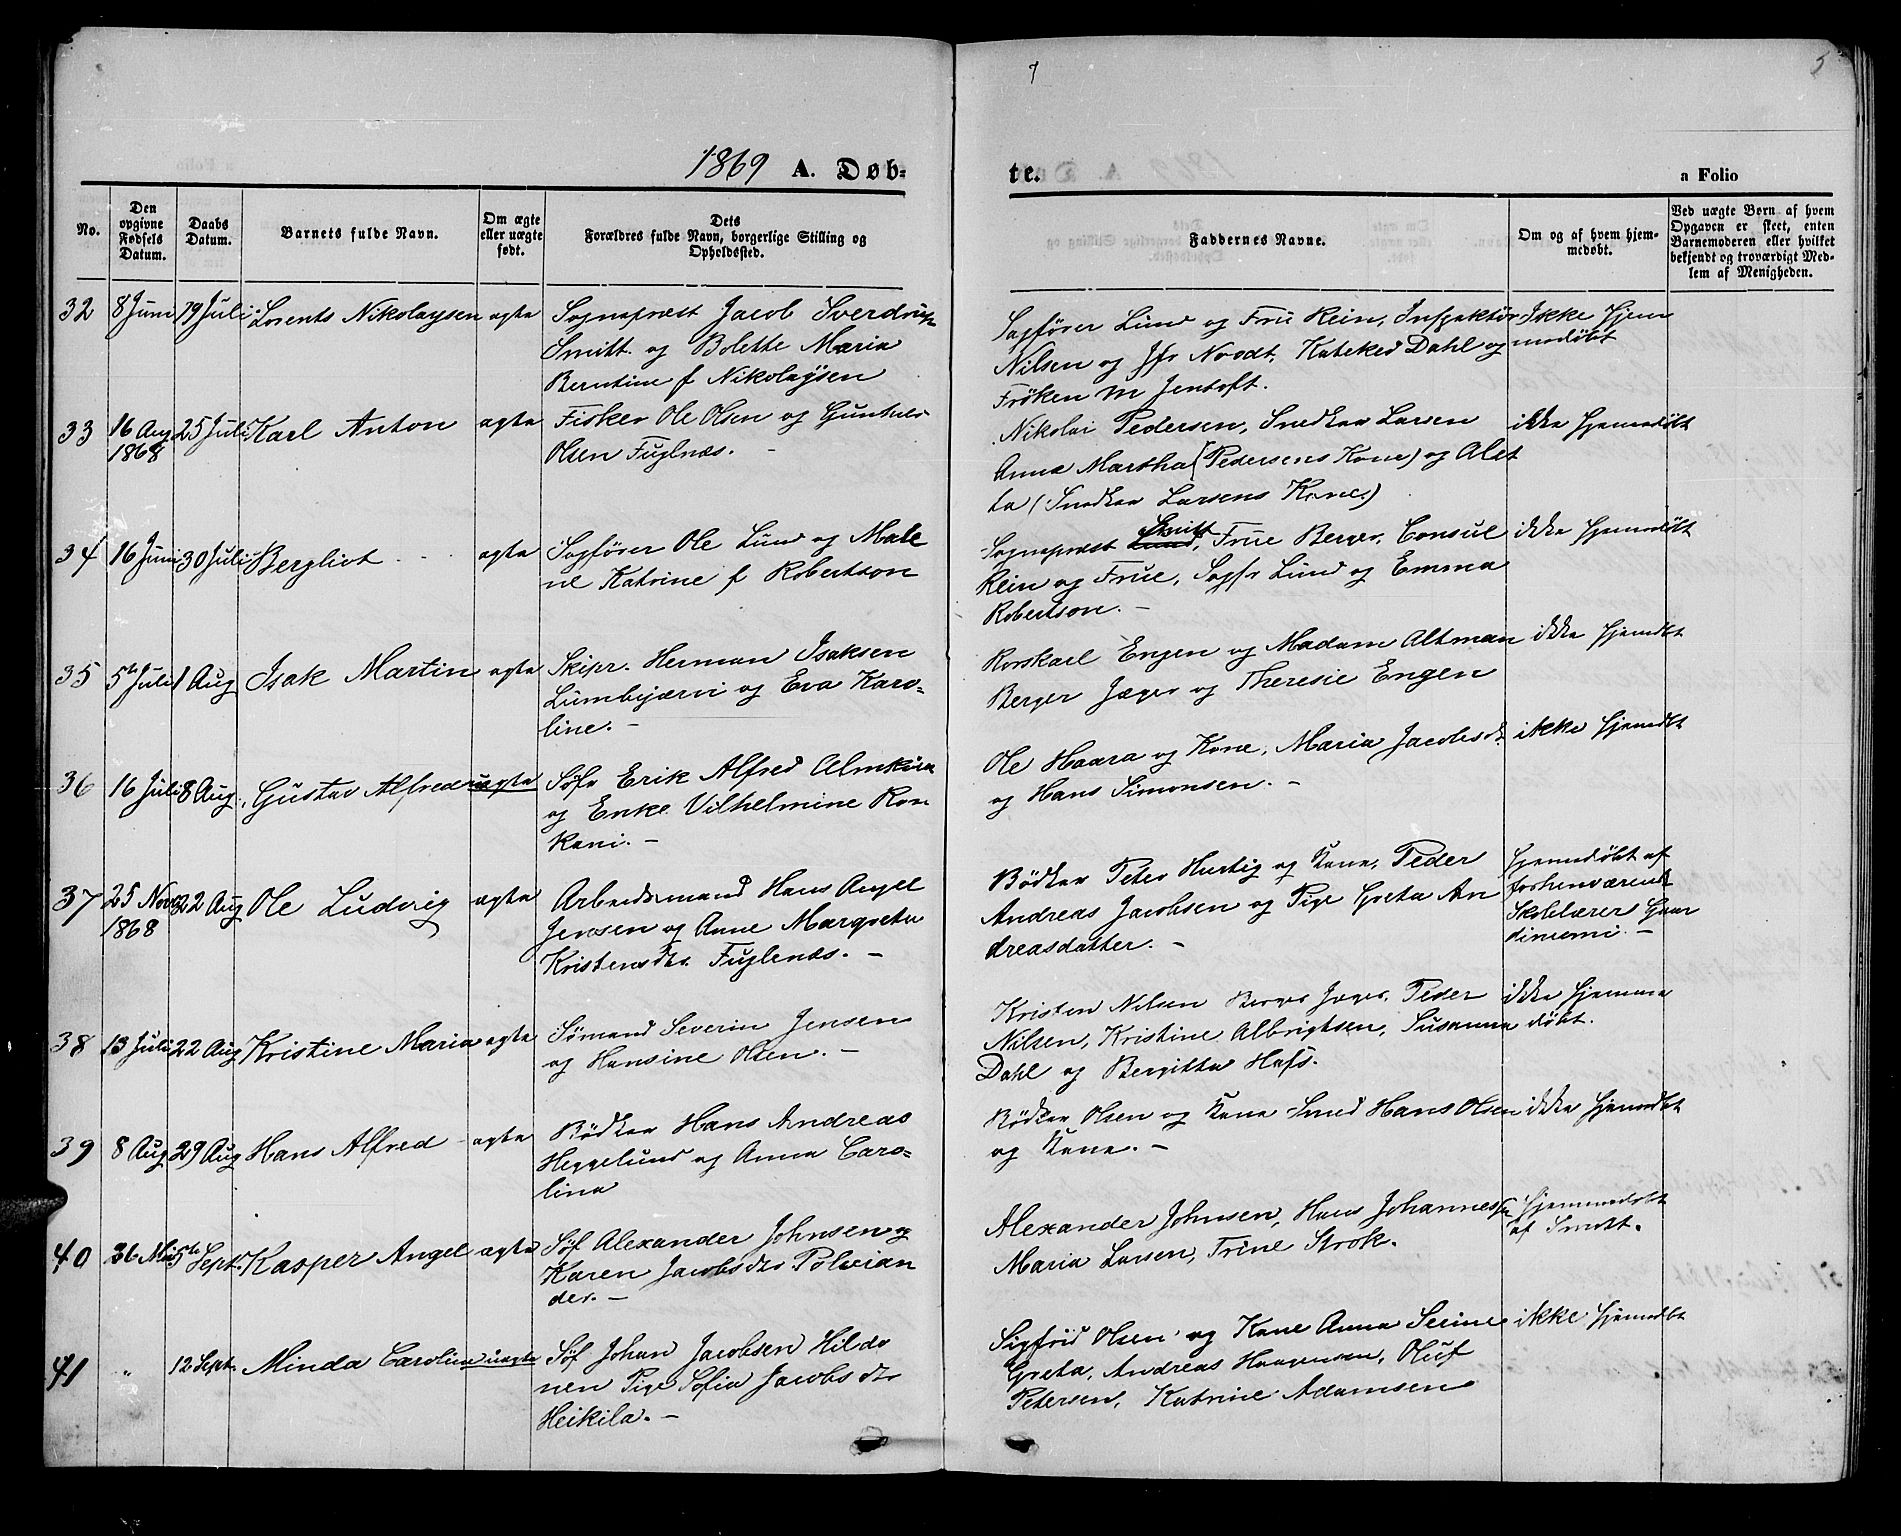 1869 A. Døb-
te. a Folio
7
5
No.
Den opgivne Fødsels Datum.
Daabs Datum.
Barnets fulde Navn.
Om ægte eller uægte født.
Dets Forældres fulde Navn, borgerlige Stilling og Opholdssted.
Faddernes Navne.
Om og af hvem hjemmedøbt.
Ved uægte Børn af hvem Opgaven er skeet, enten Barnemoderen eller hvilket bekjendt og troværdigt Medlem af Menigheden.
32 8 Juni 19 Juli Lorents Nikolaysen ægte Sognepræst Jacob Sverdrup
Smitt. og Bolette Maria
Berntine f Nikolaysen
Sagfører Lund og Frue Rein, Inspektør
Nilsen og Jfr Noodt, Kateket Dahl og
Frøken M Jentoft.
Ikke hjem
medøbt
33 16 Aug 1868 25 Juli Karl Anton ægte Fisker Ole Olsen og
Olsen Fuglnæs. -
Nikolai Pedersen, Snedker Larsen
Anna Martha (Pedersens Kone) og Alet
ta (Snedker Larsens Kone.)
ikke hjemmedøbt
34 16 Juni 30 Juli Bergliot ægte Sagfører Ole Lund og Male
ne Katrine f Robertson
Sognepræst Smitt, Frue Berger, Consul
Rein og Frue, Sagfr Lund og Emma
Robertson. -
ikke hjemmedøbt
35 5te Juli 1 Aug Isak Martin ægte Skipr. Herman Isaksen
Lumbijærvi og Eva Karo-
line. -
Korskarl Engen og Madam Altman
Berger Jæger og Theresie Engen
ikke hjemdbt
36 16 Juli 8 Aug. Gustav Alfred uægte Søfr Erik Alfred
og Enke Vilhelmine Ron
kani. -
Ole Haara og Kone, Maria Jacobsd.
og Hans Simonsen. -
ikke hjemdbt
37 25 Novb 1868 22 Aug Ole Ludvig ægte Arbeidsmand Hans Angel
Jensen og Anne Margreta
Kristensdtr. Fuglenæs. -
Bødker Peter Hurtig og Kone, Peder
Andreas Jacobsen og Pige Greta An
dreasdatter. -
hjemmedøbt af
forhenværende
Skolelærer
-
38 13 Juli 22 Aug Kristine Maria ægte Sømand Severin Jensen
og Hansine Olsen. -
Kristen Nilsen Berger Jæger, Peder
Nilsen, Kristine Albrigtsen, Susanna
Dahl og Bergitta Hafs.
ikke hjemme
døbt.
39 8 Aug 29 Aug Hans Alfred ægte Bødker Hans Andreas
Heggelund og Anna Caro-
lina
Bødker Olsen og Kone Smed Hans Olsen
og Kone. -
ikke hjemdbt
40 26 Mai 5te Sept. Kasper Angel ægte Søf Alexander Johnsen og
Karen Jacobsdtr Polvian
der. -
Alexander Johnsen, Hans Johannes
Maria Larsen, Trine Strok.
hjemmedøbt
af Smitt.
41 " 12 Sept. Minda Carolina uægte Søf Johan Jacobsen Hildo
nen Pige Sofia Jacobsdtr
Heikila. -
Sigfrid Olsen og Kone Anna Serine
Greta, Andreas Haagensen, Oluf
Petersen, Katrine Adamsen
ikke hjemdbt